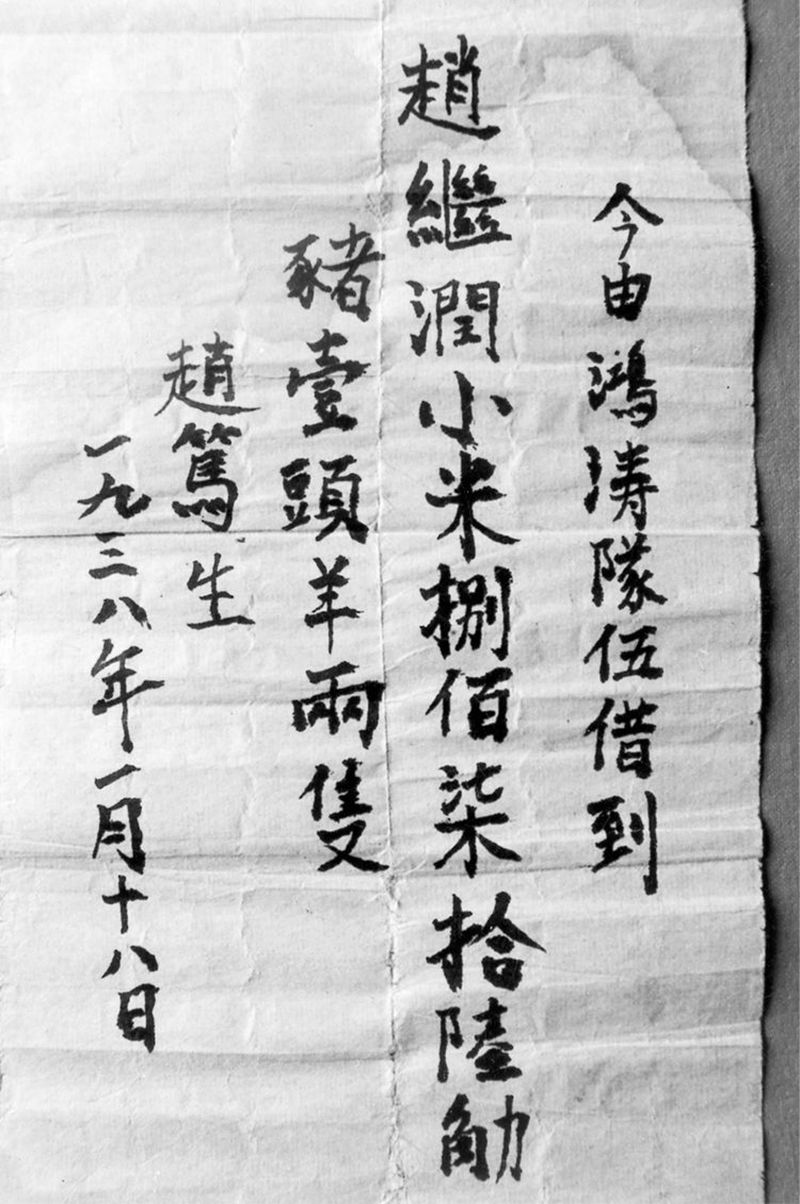 今由鴻涛隊伍借到
趙繼潤小米捌佰柒拾陸觔
豬壹頭羊兩隻
趙篤生
一九三八年一月十八日